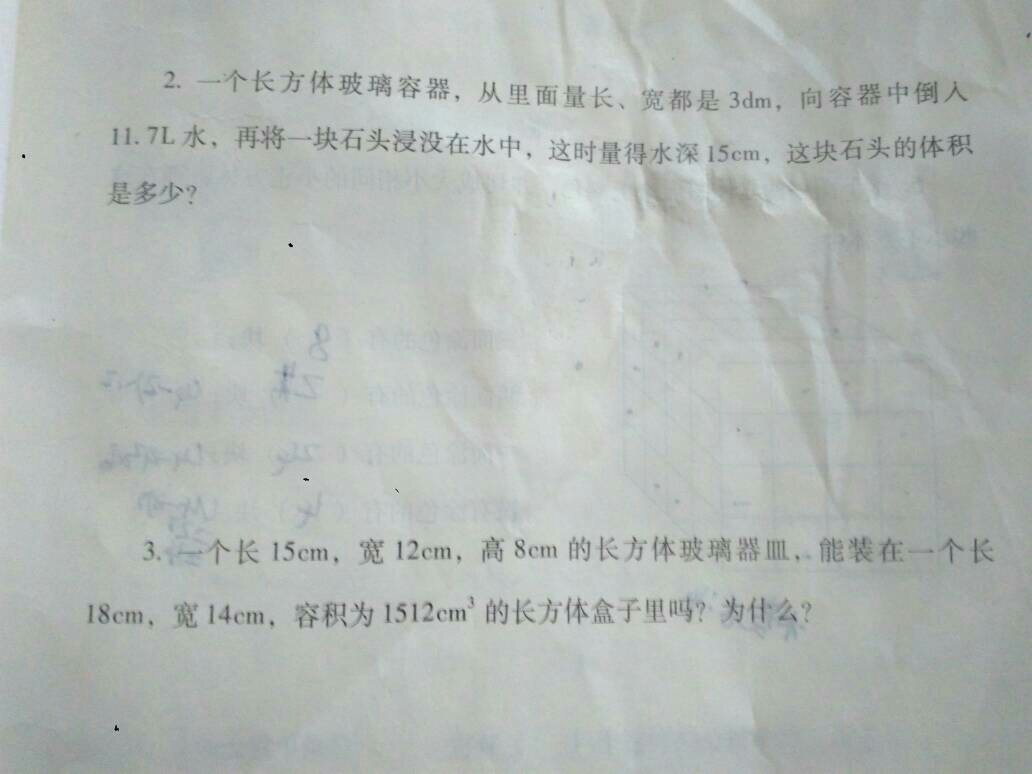 2. 一个长方体玻璃容器，从里面量长、宽都是 3dm，向容器中倒入
11.7L 水，再将一块石头浸没在水中，这时量得水深 15cm，这块石头的体积
是多少？
3. 一个长 15cm，宽 12cm，高 8cm 的长方体玻璃器皿，能装在一个长
18cm，宽 14cm，容积为 1512cm³ 的长方体盒子里吗？为什么？